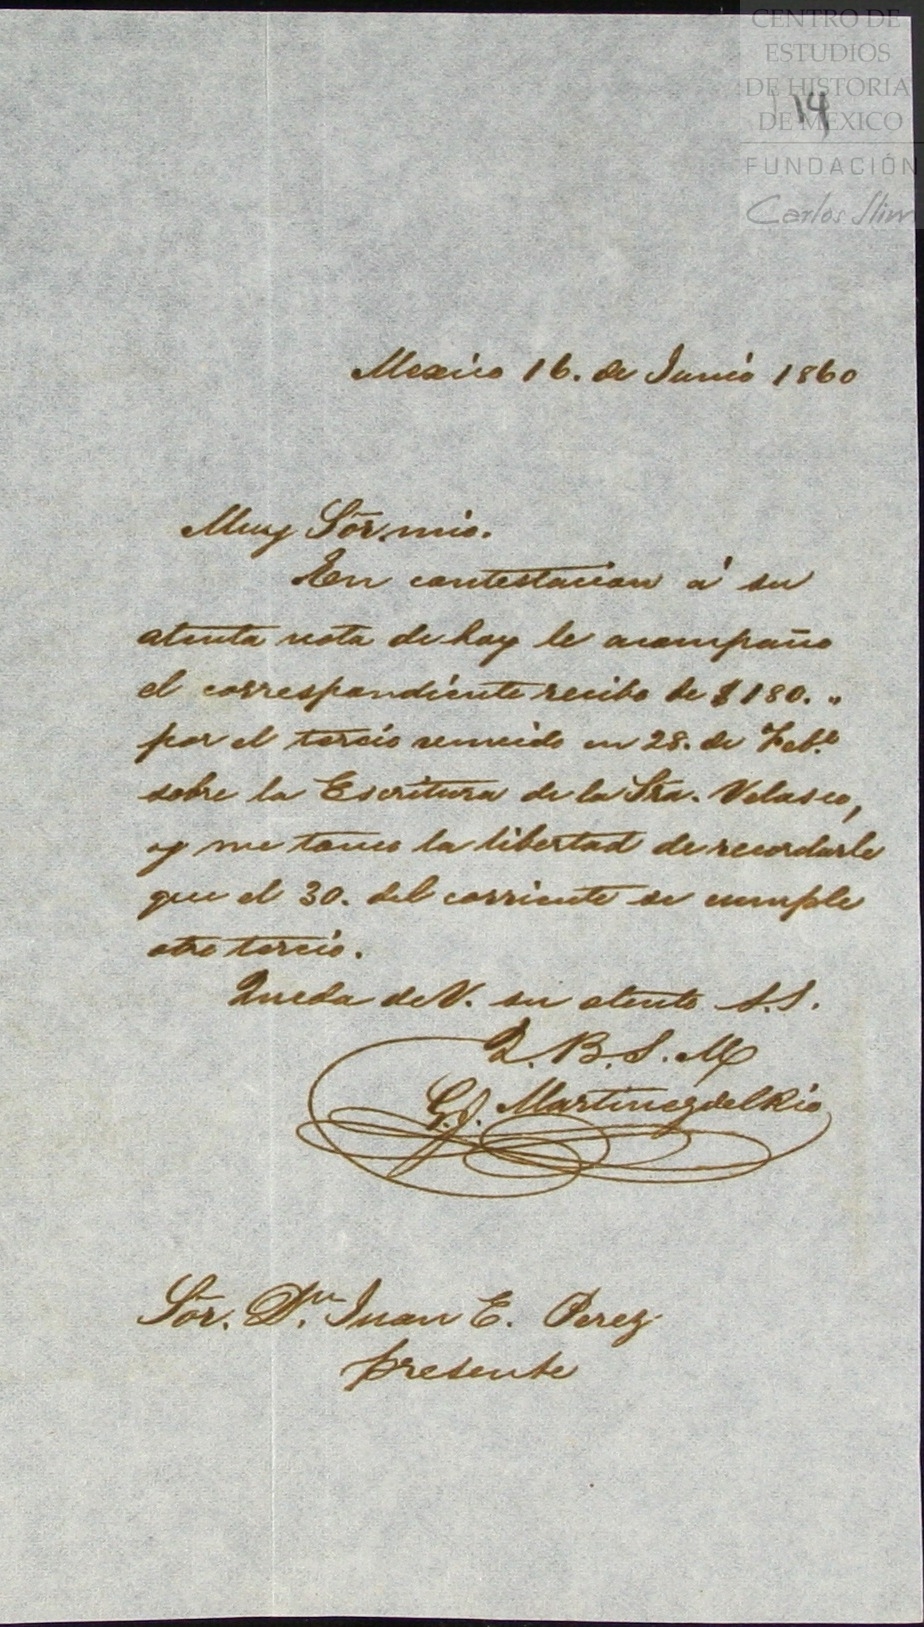 CENTRO DE
ESTUDIOS
DE HISTORIA
DE MEXICO
FUNDACIÓN
Carlos Slim
14
Mexico 16. de Junio 1860
Muy Sōr mio.
En contestacion á su
atenta nota de hoy le acompaño
el correspondiente recibo de $180. „
por el tercio vencido en 28. de Feb.o
sobre la Escritura de la Sra. Velasco,
y me tomo la libertad de recordarle
que el 30. del corriente se cumple
otro tercio.
Queda de V. su atento S.S.
Q. B. S. M
G.J. Martinez del Rio
Sōr. Dn. Juan E. Perez
presente